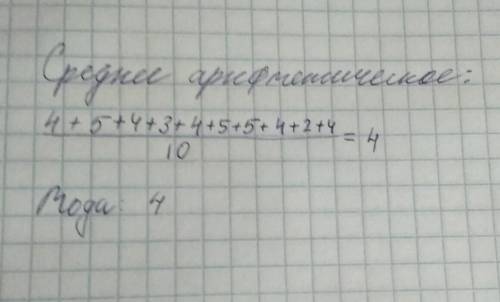 Среднее арифметическое:
4 + 5 + 4 + 3 + 4 + 5 + 5 + 4 + 2 + 4
10
= 4
Мода: 4